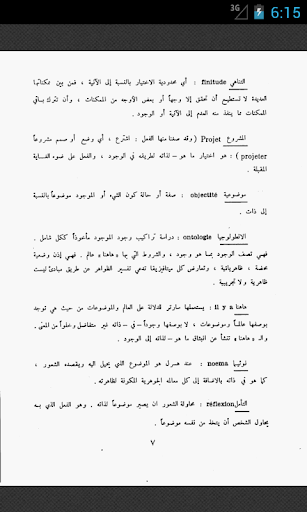 3G 6:15
التناهي finitude : أي محدودية الاختيار بالنسبة إلى الآنية ، فمن بين ممكناتها
العديدة لا تستطيع أن تحقق إلا وجهاً أو بعض الأوجه من الممكنات ، وأن تترك باقي
الممكنات مما ينفذ منه العدم إلى الآنية أو الوجود .
المشروع Projet (وقد صغنا منها الفعل : اشترع ، أي وضع أو صمم مشروعاً
projeter) : هو اختيار ما هو – لذاته لطريقه في الوجود ، والفعل على ضوء الغاية
المقبلة .
موضوعية objectité : صفة أو حالة كون الشيء أو الموجود موضوعاً بالنسبة
إلى ذات .
الانطولوجيا ontologie : دراسة تراكيب وجود الموجود مأخوذاً ككل شامل .
فهي تصف الوجود بما هو وجود ، والشروط التي بها « هاهنا » عالم . فهي إذن وضعية
محضة ، ظاهرياتية ، وتعارض كل ميتافيزيقا تدعي تفسير الظواهر عن طريق مبادئ ليست
ظاهرية ولا تجريبية .
هاهنا il y a : يستعملها سارتر للدلالة على العالم والموضوعات من حيث هي توجد
بوصفها عالماً وموضوعات ، لا بوصفها وجوداً – في – ذاته غير متفاضل وخلواً من المعنى .
والـ « هاهنا » تنشأ عن انبثاق ما هو – لذاته في الوجود .
نوئيما noema : عند هسرل هو الموضوع الذي يحيل اليه ويقصده الشعور ،
كما هو في ذاته بالاضافة إلى كل معالمه الجوهرية المكونة لظاهرته .
التأمل réflexion : محاولة الشعور ان يصير موضوعاً لذاته . وهو الفعل الذي به
يحاول الشخص أن يتخذ من نفسه موضوعاً .
٧